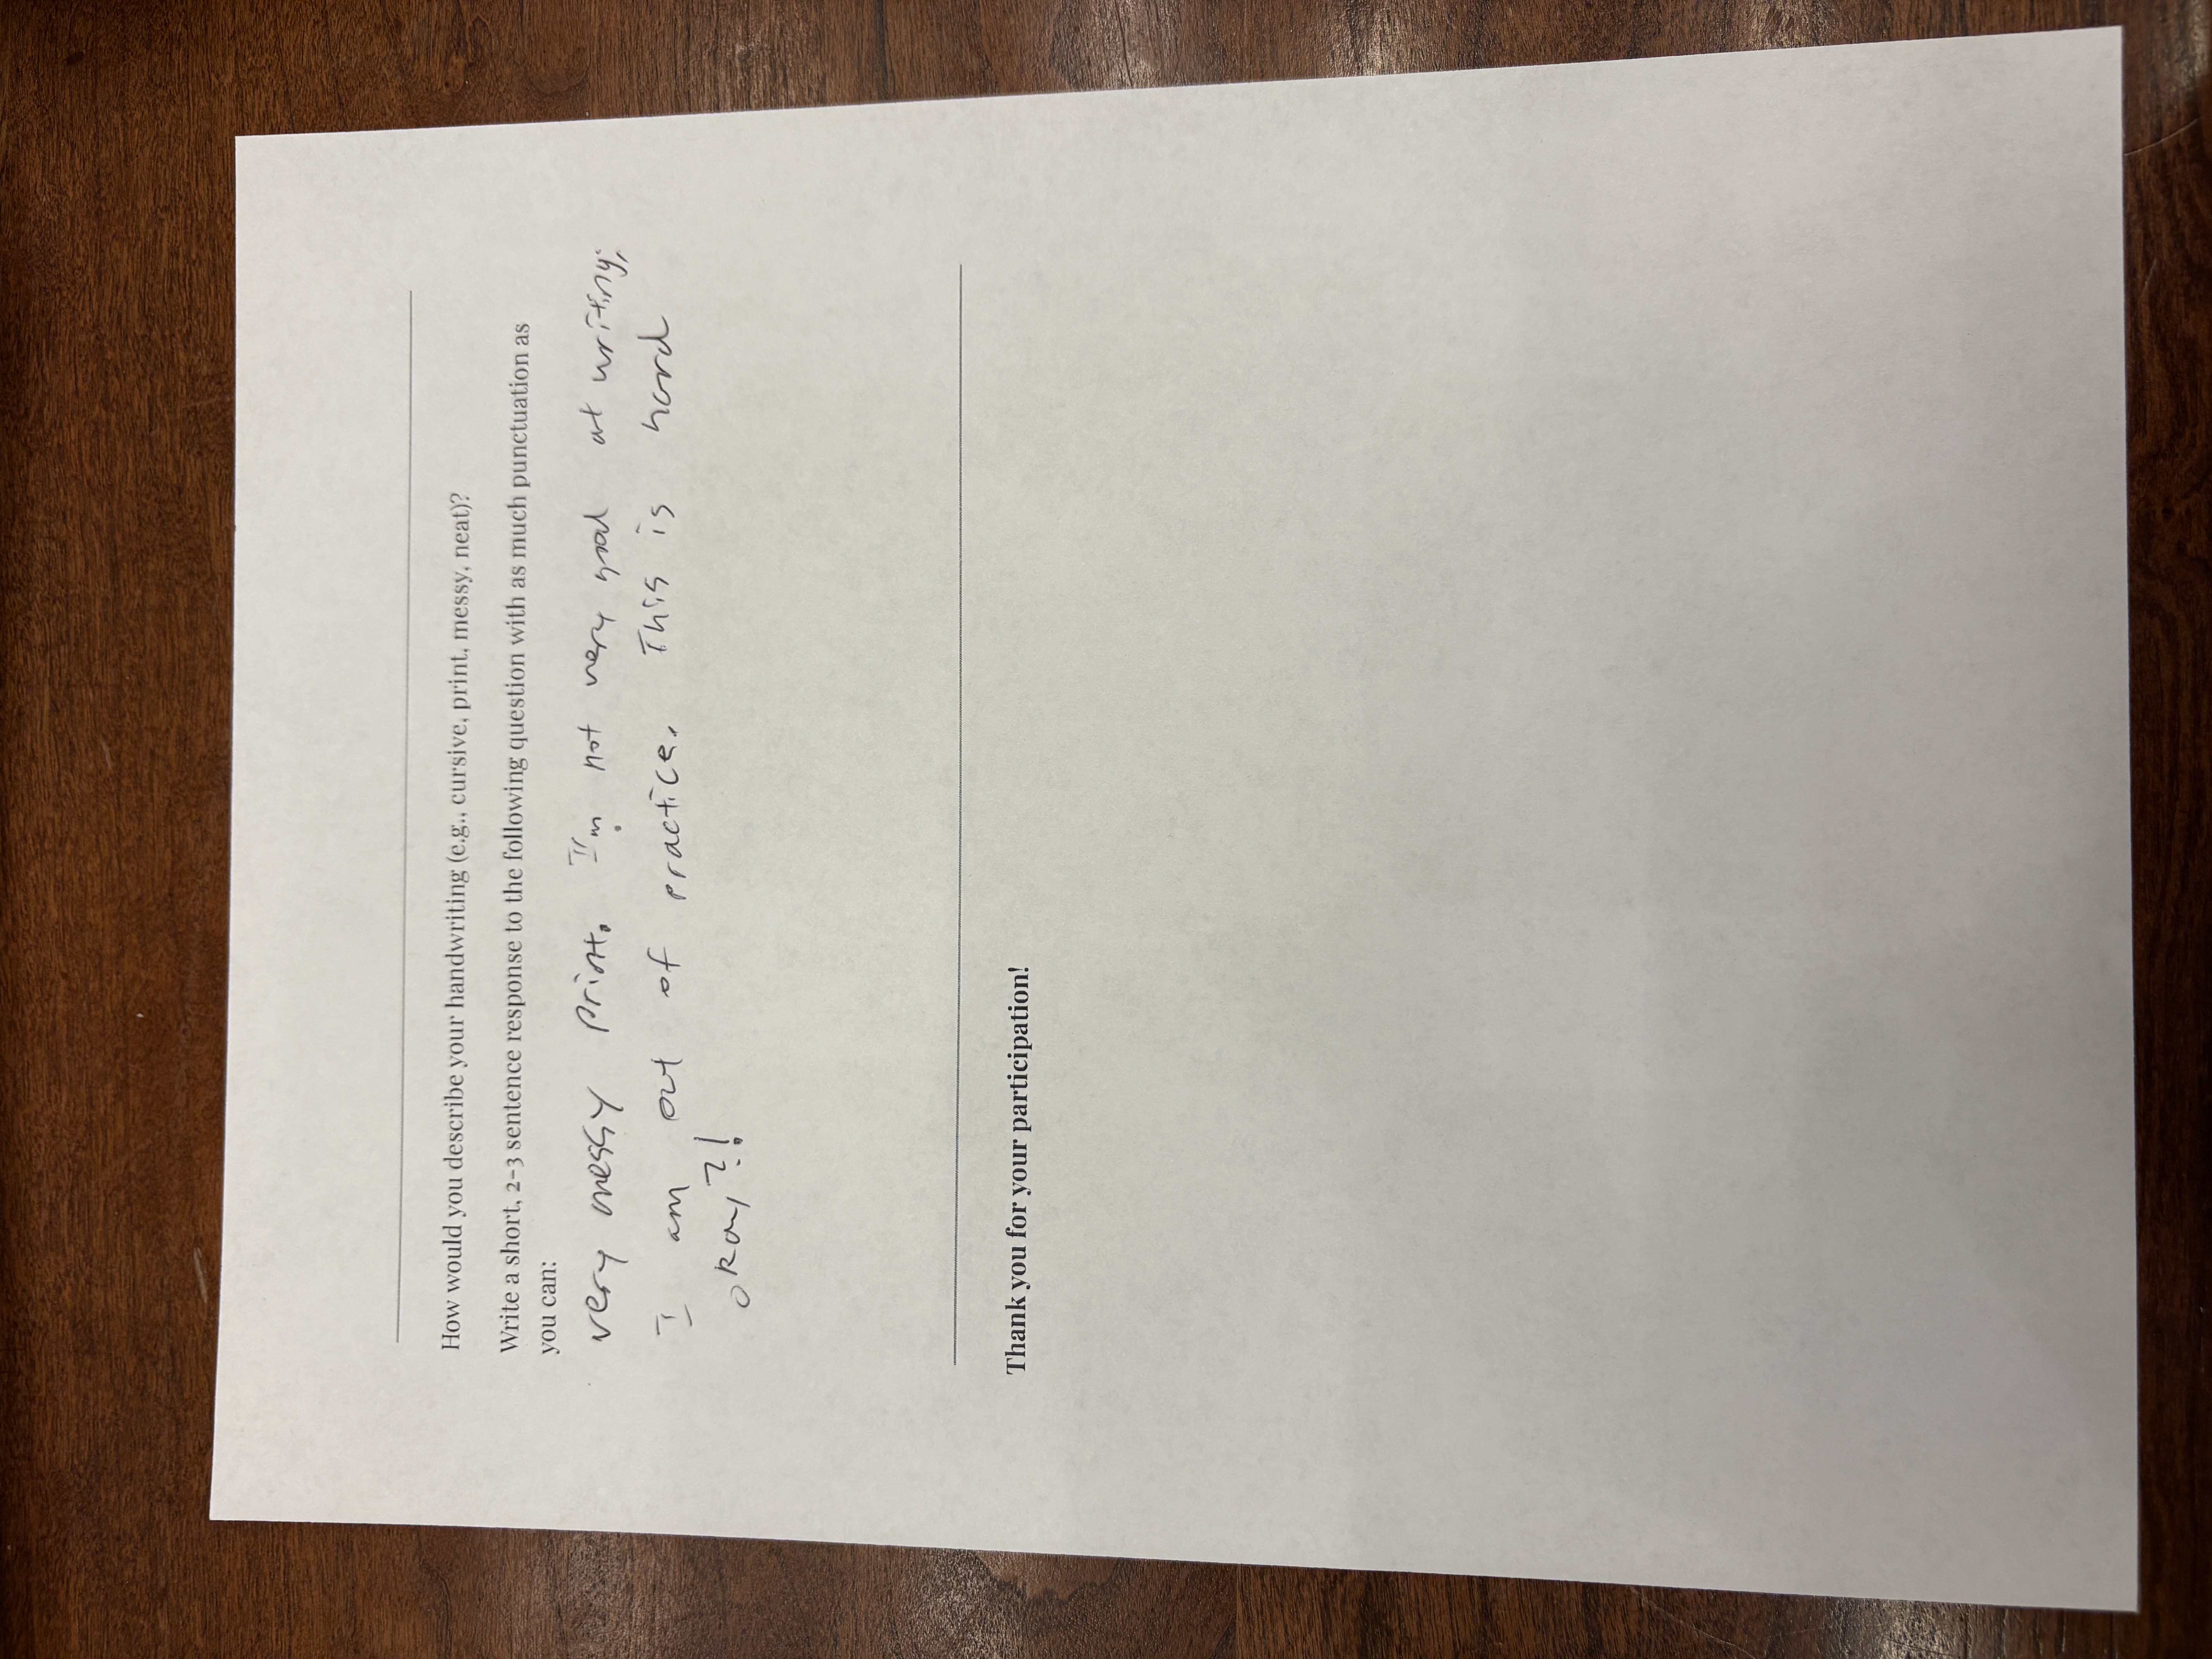 How would you describe your handwriting (e.g., cursive, print, messy, neat)?
Write a short, 2-3 sentence response to the following question with as much punctuation as
you can:
very messy print. I'm not very good at writing;
I am out of practice. This is hard
okay?!
Thank you for your participation!